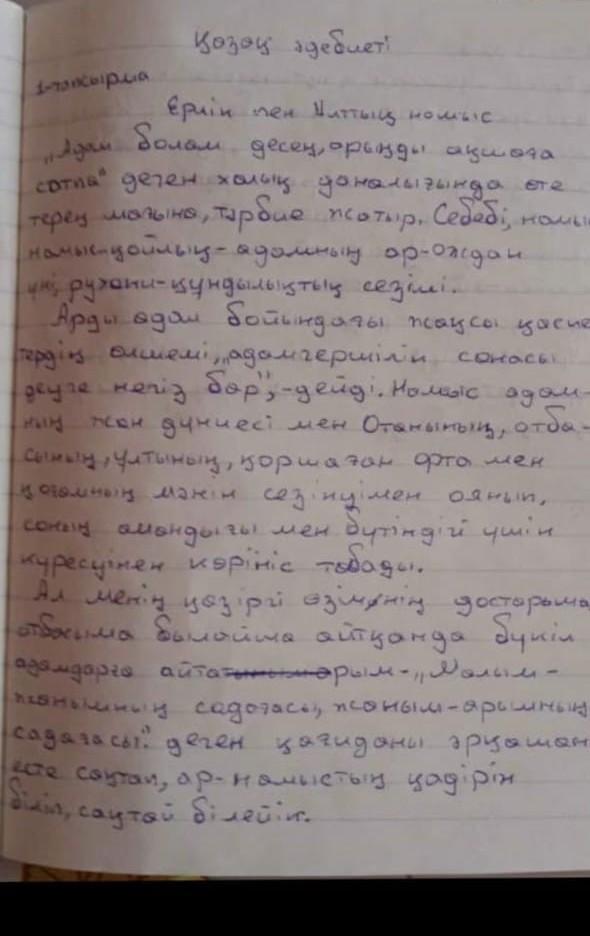 Қазақ әдебиеті
1-тапсырма
Ерлік пен Ұлттық намыс
„Адам болам десең, арыңды ақшаға
сатпа" деген халық даналығында өте
терең мағына, тәрбие жатыр. Себебі, намыс
намыс-қойлық - адамның ар-ождан
үні, рухани-құндылықтың сезімі.
Арды адам бойындағы жақсы қасие
тердің өлшемі, „адамгершілік сонасы
деуге негіз бар", - дейді. Намыс адам-
ның жан дүниесі мен Отанының, отба-
сының, ұлтының, қоршаған орта мен
қоғамның мәнін сезінуімен оянып,
соның амандығы мен бүтіндігі үшін
күресуінен көрініс табады.
Ал менің қазіргі өзімнің достарыма
отбасыма былайша айтқанда бүкіл
адамдарға айтарым - „Малым-
жанымның садағасы, жаным-арымның
садағасы." деген қағиданы әрқашан
есте сақтап, ар-намыстың қадірін
біліп, сақтай білейік.